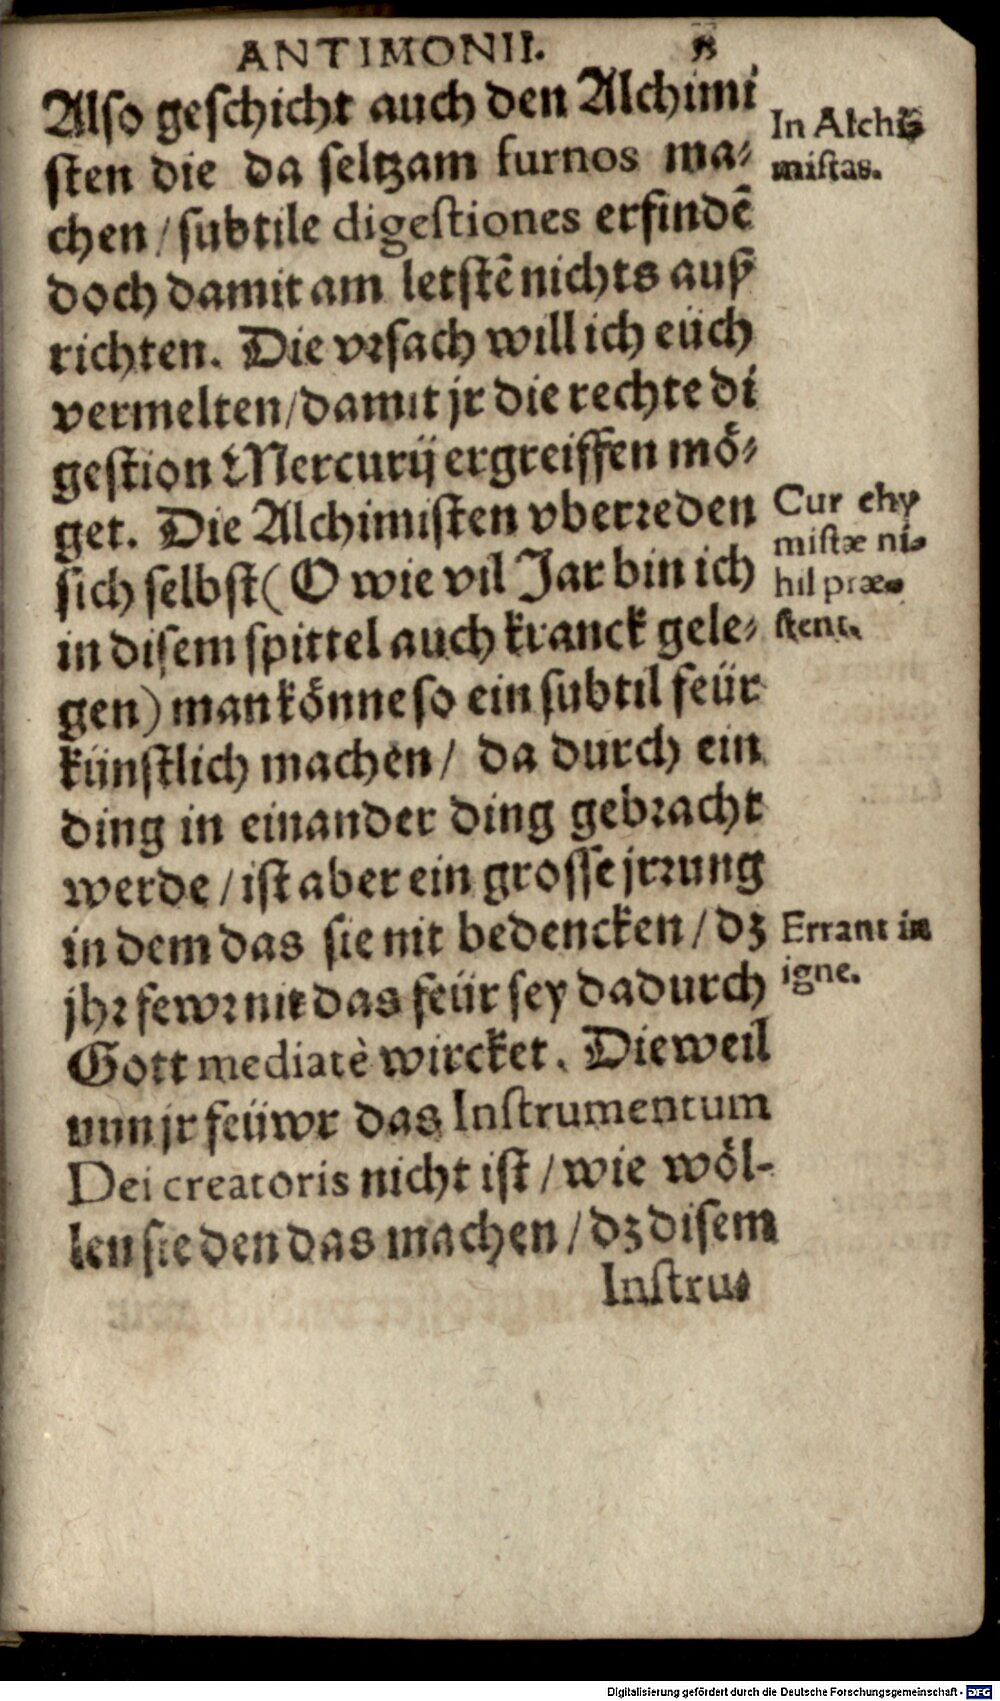 ANTIMONII.
Also geschicht auch den Alchimi
sten die da seltzam furnos ma-
chen / subtile digestiones erfindē
doch damit am letstē nichts auß
richten. Die vrsach will ich eüch
vermelten / damit jr die rechte di
gestion Mercurij ergreiffen mö-
get. Die Alchimisten vberreden
sich selbst ( O wie vil Jar bin ich
in disem spittel auch kranck gele-
gen) man könne so ein subtil feür
künstlich machen / da durch ein
ding in einander ding gebracht
werde / ist aber ein grosse jrrung
in dem das sie nit bedencken / dz
jhr fewr nit das feür sey dadurch
Gott mediatè wircket. Dieweil
nun jr feüwr das Instrumentum
Dei creatoris nicht ist / wie wöl-
len sie den das machen / dz disem
Instru-
In Alchi
mistas.
Cur chy
mistæ ni-
hil præ-
stent.
Errant in
igne.
Digitalisierung gefördert durch die Deutsche Forschungsgemeinschaft - DFG